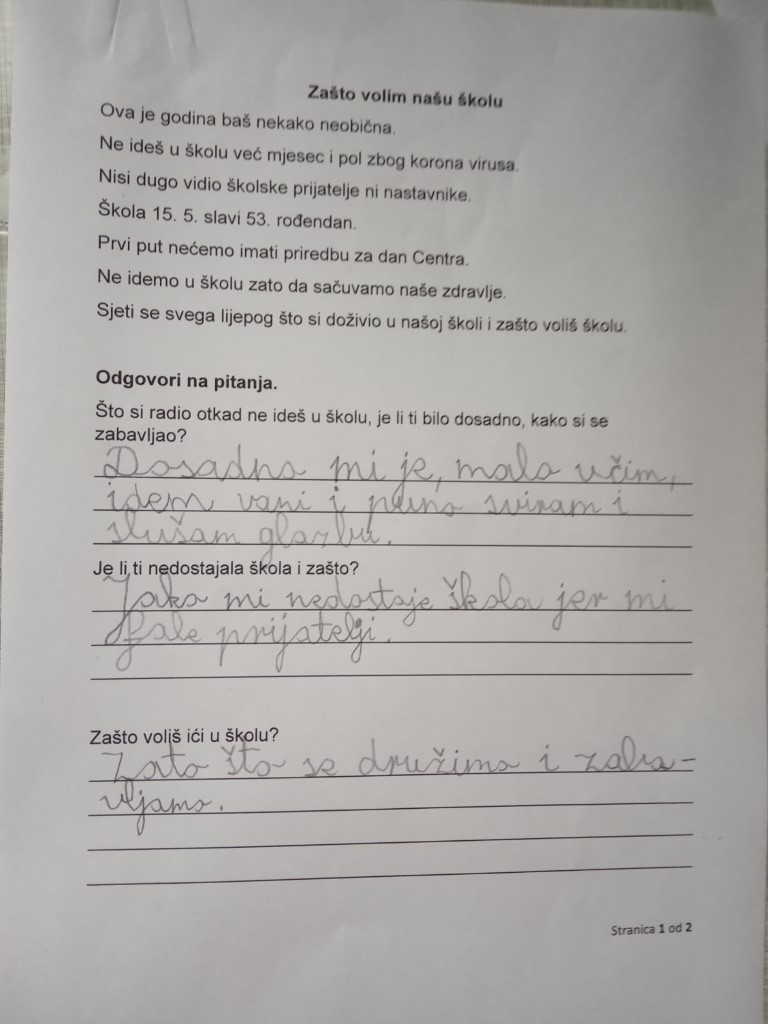 Zašto volim našu školu
Ova je godina baš nekako neobična.
Ne ideš u školu već mjesec i pol zbog korona virusa.
Nisi dugo vidio školske prijatelje ni nastavnike.
Škola 15. 5. slavi 53. rođendan.
Prvi put nećemo imati priredbu za dan Centra.
Ne idemo u školu zato da sačuvamo naše zdravlje.
Sjeti se svega lijepog što si doživio u našoj školi i zašto voliš školu.
Odgovori na pitanja.
Što si radio otkad ne ideš u školu, je li ti bilo dosadno, kako si se
zabavljao?
Dosadno mi je, malo učim,
idem vani i puno sviram i
slušam glazbu.
Je li ti nedostajala škola i zašto?
Jako mi nedostaje škola jer mi
fale prijatelji.
Zašto voliš ići u školu?
Zato što se družimo i zaba-
vljamo.
Stranica 1 od 2